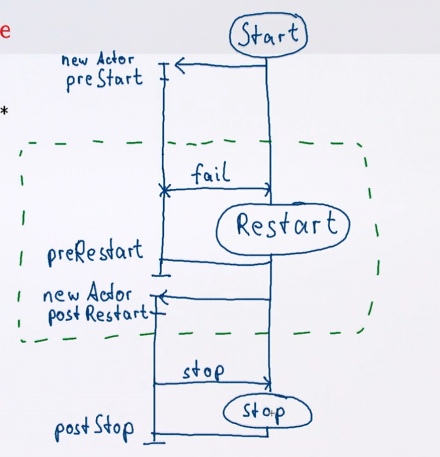 e
Start
new Actor
preStart
*
fail
Restart
preRestart
new Actor
postRestart
stop
stop
postStop